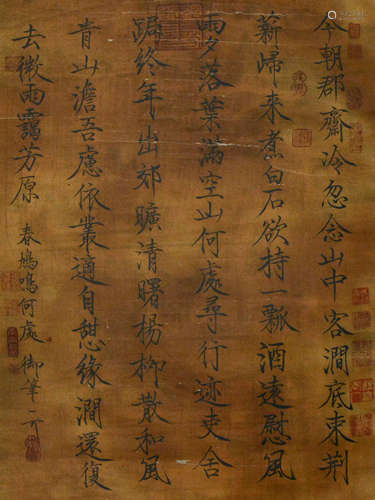 今朝郡齋冷忽念山中客澗底束荊
薪歸來煮白石欲持一瓢酒遠慰風
雨夕落葉滿空山何處尋行迹吏舍
跼終年出郊曠清曙楊柳散和風
青山澹吾慮依叢適自憇緣澗還復
去微雨靄芳原
春鳩鳴何處
御筆